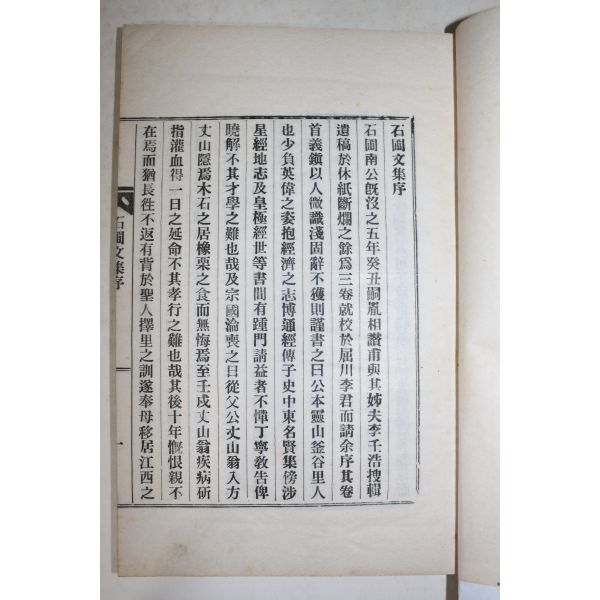 石圃文集序
石圃南公旣沒之五年癸丑嗣胤相讃甫與其姊夫李壬浩搜輯
遺稿於休紙斷爛之餘爲三卷就校於屈川李君而請余序其卷
首義鎭以人微識淺固辭不獲則謹書之曰公本靈山釜谷里人
也少負英偉之姿抱經濟之志博通經傳子史中東名賢集傍涉
星經地志及皇極經世等書間有踵門請益者不憚丁寧敎告俾
曉解不其才學之難也哉及宗國淪喪之日從父公丈山翁入方
丈山隱焉木石之居橡栗之食而無悔焉至壬戌丈山翁疾病斫
指灌血得一日之延命不其孝行之難也哉其後十年慨恨親不
在焉而猶長徃不返有背於聖人擇里之訓遂奉母移居江西之
石圃文集序
一